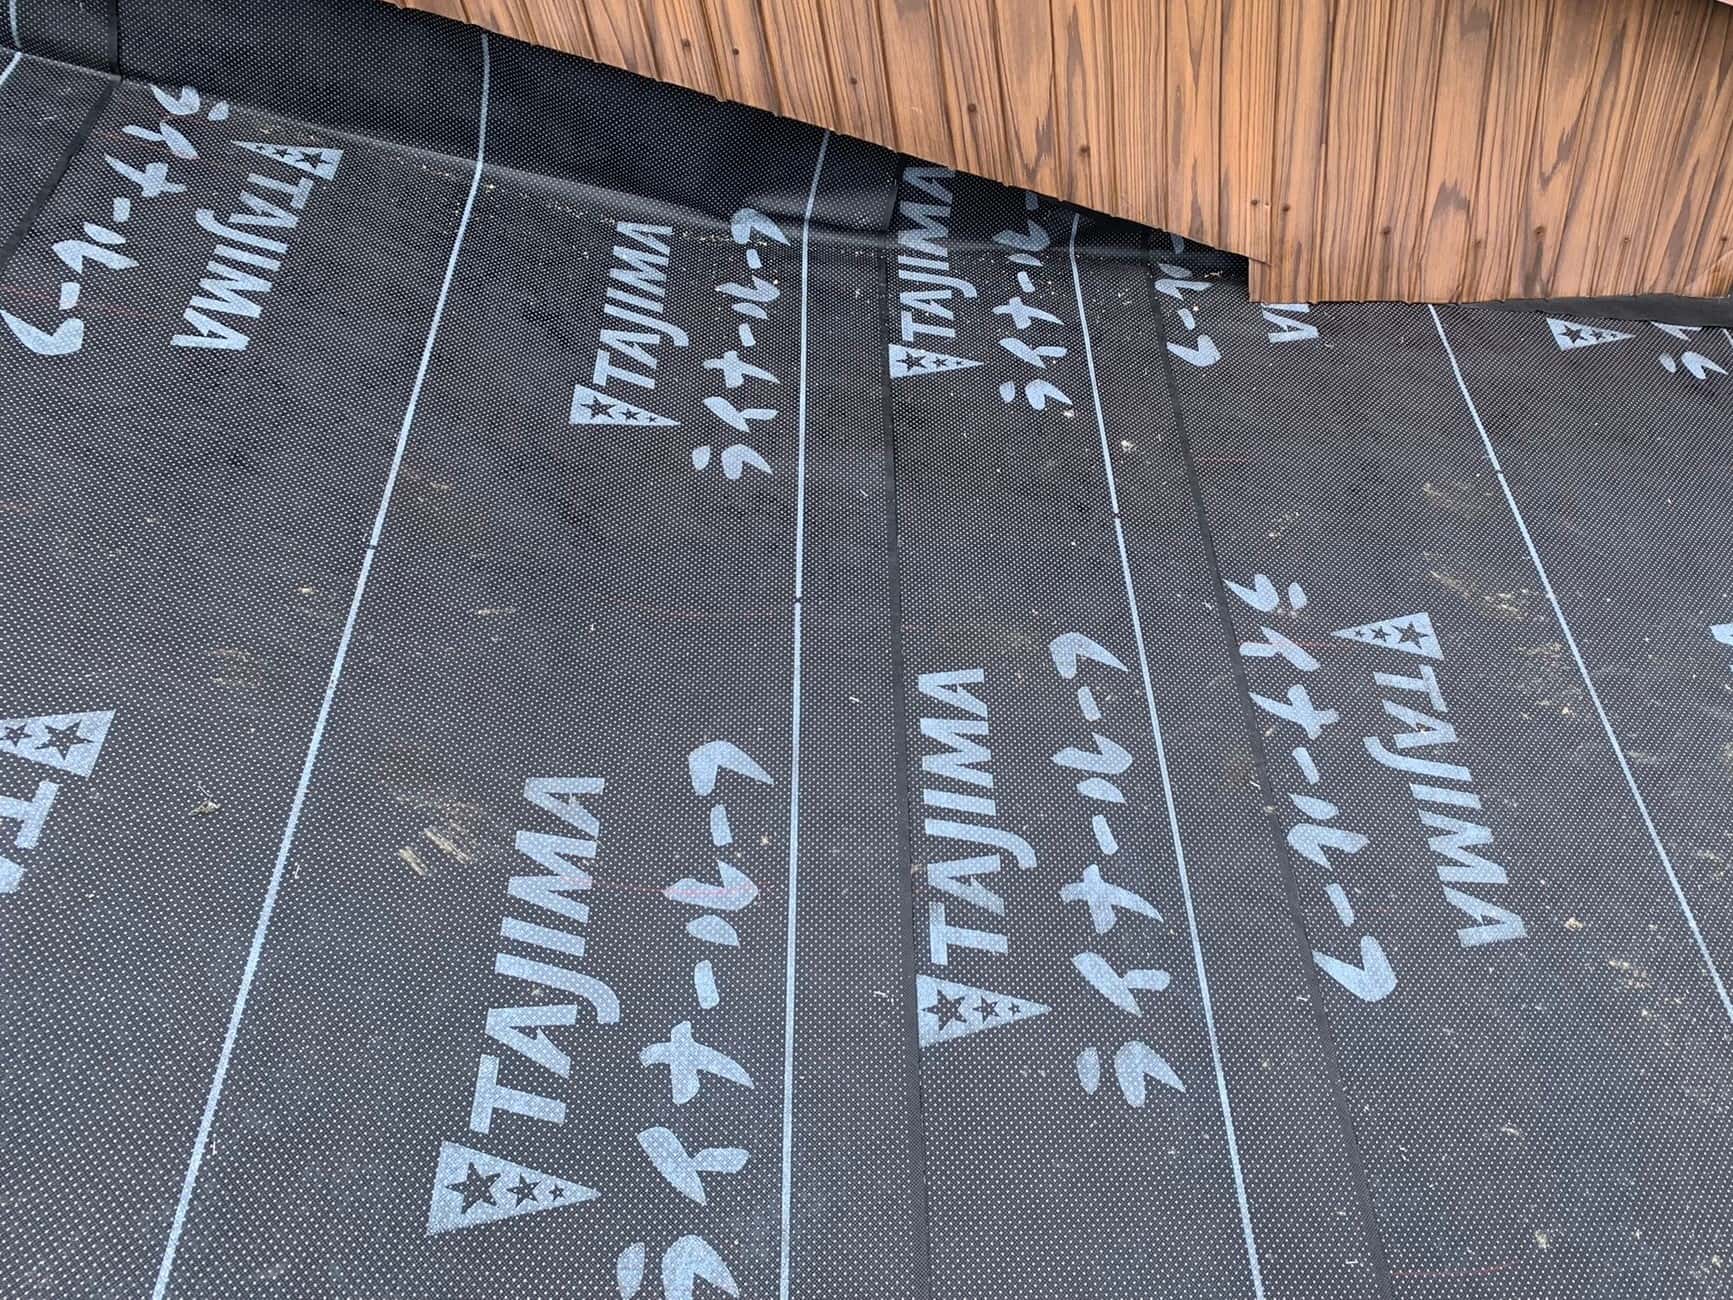 ライナールーフ
TAJIMA
TAJIMA
ライナールーフ
TAJIMA
ライナール
ルーフ
MA
TAJIMA
ライナールーフ
TAJIMA
ライナールーフ
TAJIMA
ライナールーフ